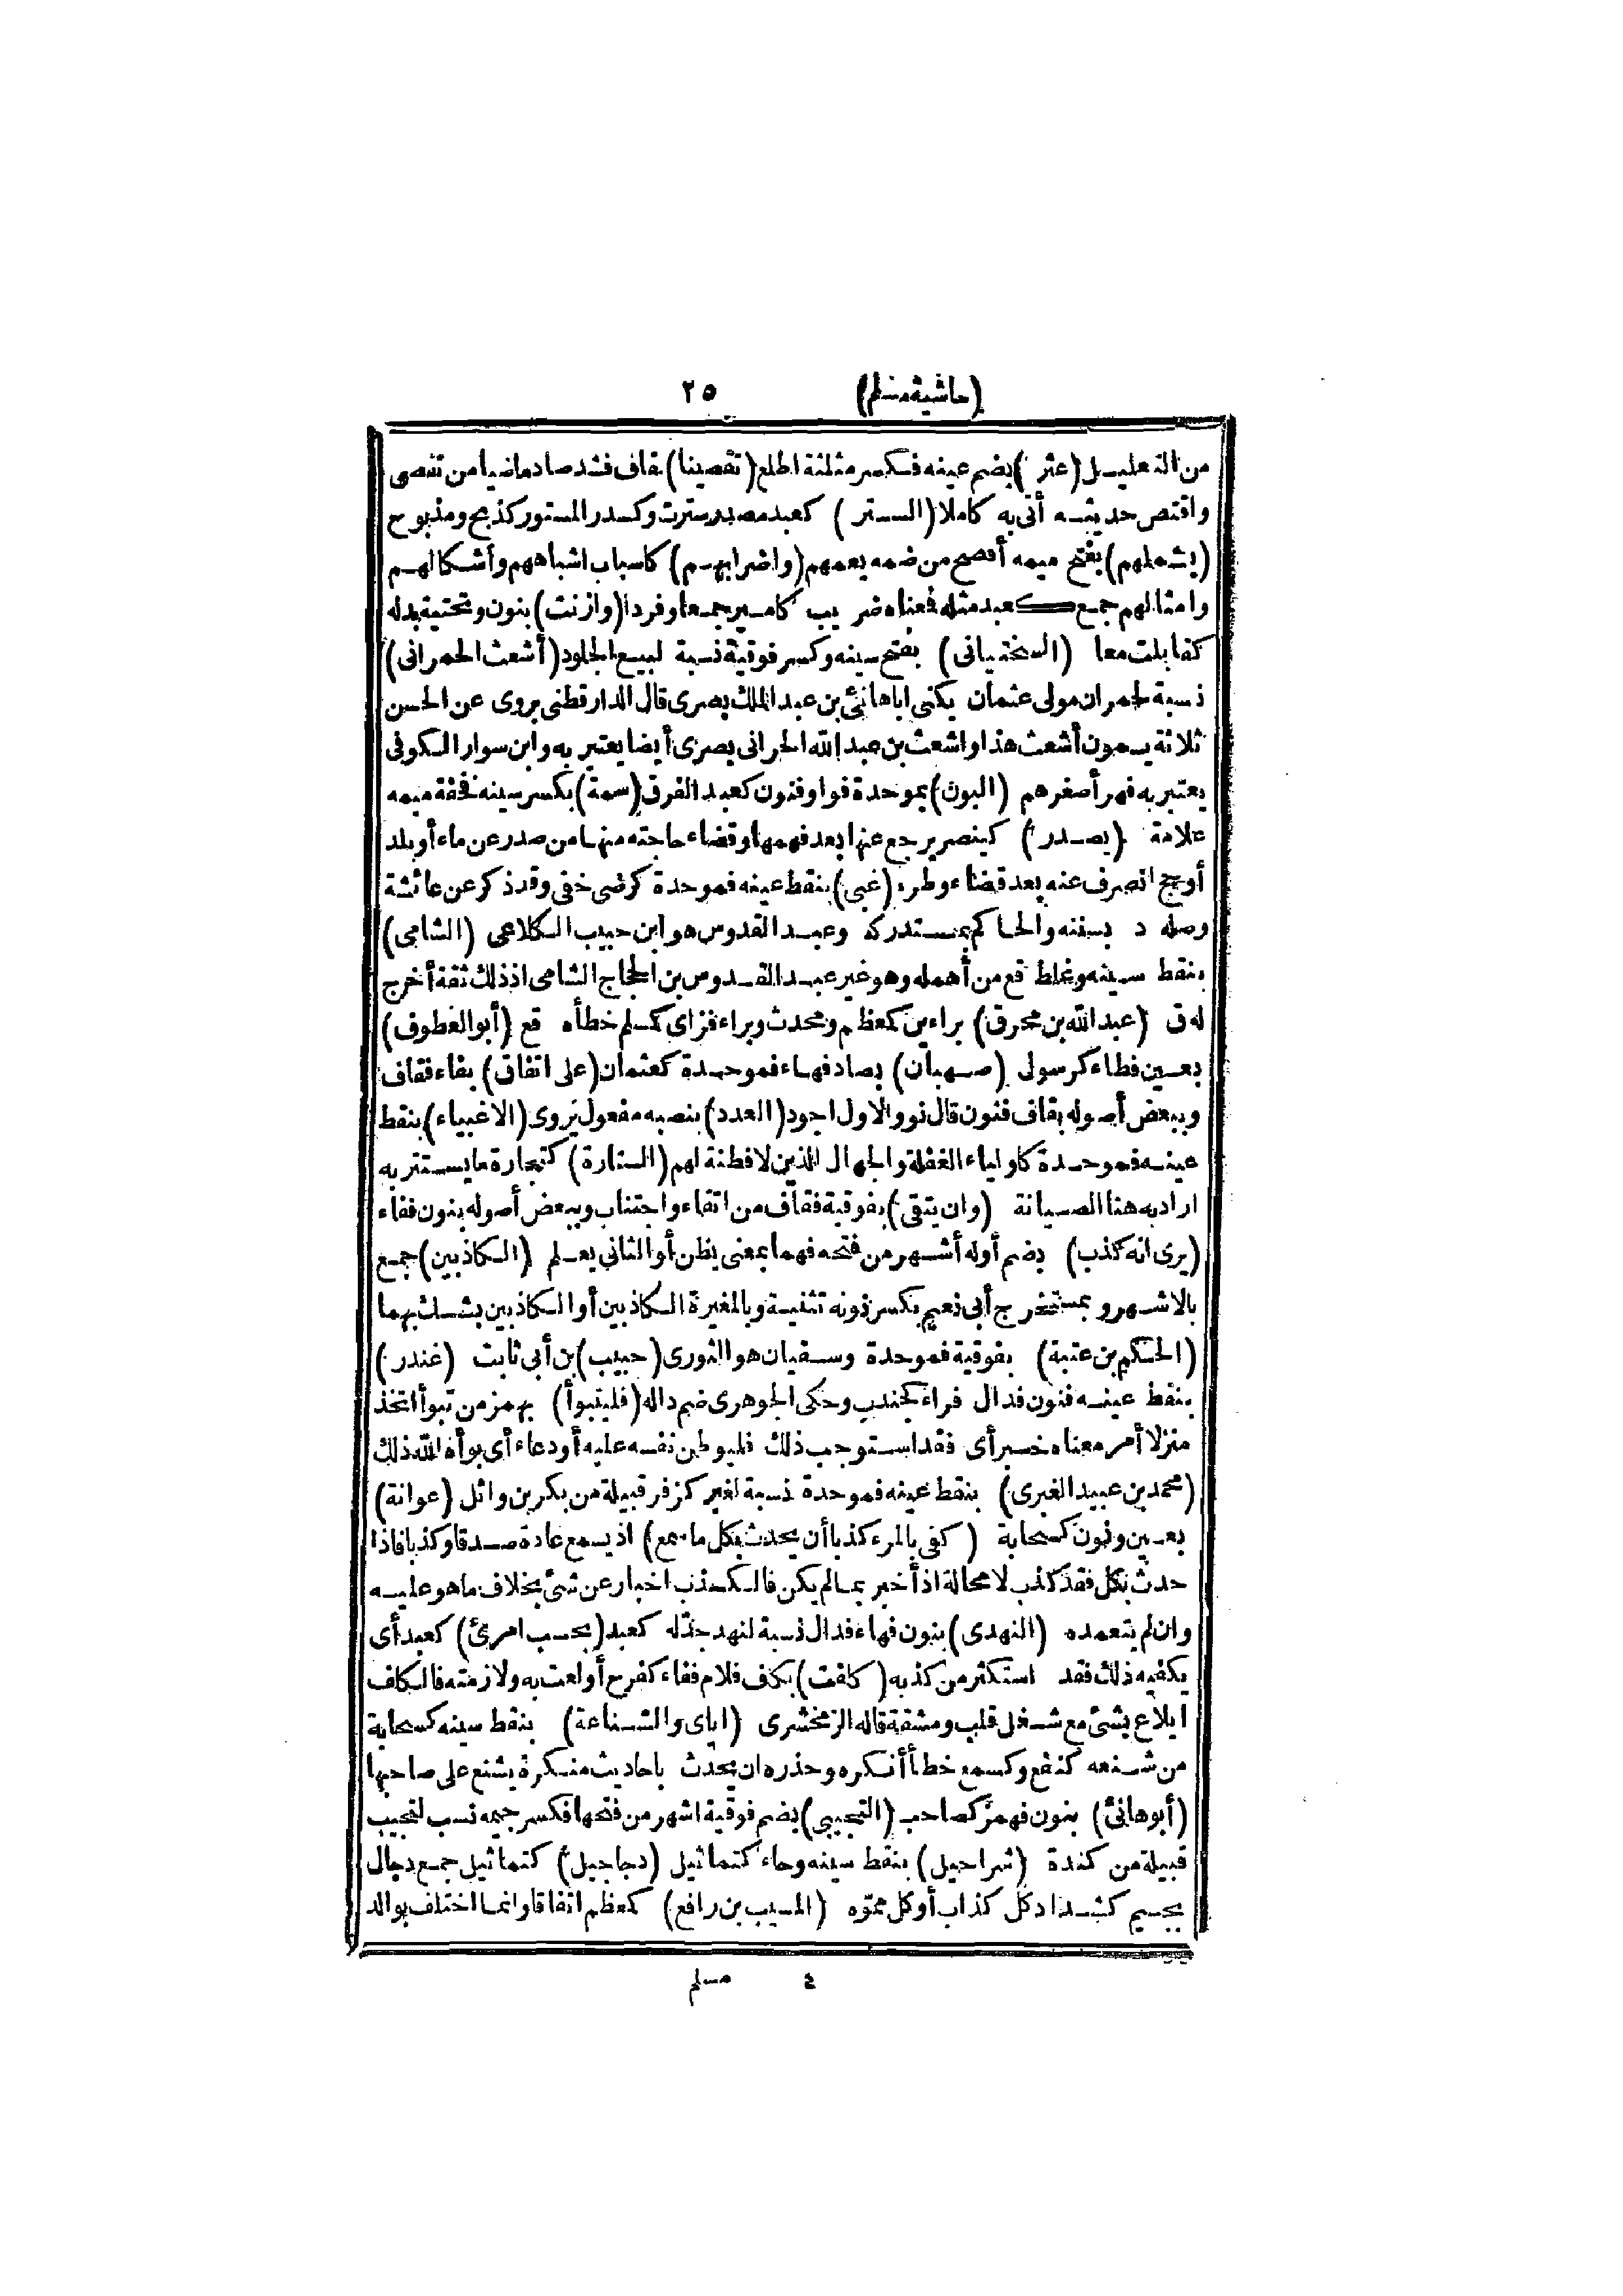 (حاشية مسلم) ٢٥
من التعليل (عثر) بضم عينه فكسر مثلثة اطلع (تقصينا) بقاف فشد صاد ماضيا من تقصى
واقتص حديثه أتى به كاملا (الستر) كعبد مصدر سترت وكسدر المستور كذبح ومذبوح
(يشملهم) بفتح ميمه أفصح من ضمه يعمهم (واضرابهم) كاسباب اشباههم وأشكالهم
وامثالهم جمع كعبد مثله فعناه ضريب كامير جمعا وفردا (وازنت) بنون وتحتية بدله
كقابلت معا (السختيانى) بفتح سينه وكسر فوقية نسبة لبيع الجلود (أشعث الحمرانى)
نسبة لحمران مولى عثمان يكنى اباهانئ بن عبد الملك بصرى قال الدارقطنى يروى عن الحسن
ثلاثة يسمون أشعث هذا واشعث بن عبد الله الحرانى بصرى أيضا يعتبر به وابن سوار الكوفى
يعتبر به فهر أصغرهم (البون) بموحدة فواو فنون كعبد الفرق (سمة) بكسر سينه نخفة ميمه
علامة (يصدر) كينصر يرجع عنها بعد فهمها وقضاء حاجته منها من صدر عن ماء أو بلد
أو حج انصرف عنه بعد قضاء وطره (غبى) بنقط عينه فموحدة كرضى خفى وقد ذكر عن عائشة
وصله د بسننه والحاكم بمستدركه وعبد القدوس هو ابن حبيب الكلاعى (الشامى)
بنقط سينه وغلط قع من أهمله وهو غير عبد القدوس بن الحجاج الشامى اذ ذلك ثقة أخرج
له ق (عبد الله بن محرق) براءين كمعظم ومحدث وبراء فزاى كمسلم خطأه قع (أبو العطوف)
بعين فطاء كرسولى (صهبان) بصاد فهاء فموحدة كعثمان (على اتفاق) بفاء فقاف
وببعض أصوله بقاف فنون قال نو والاول اجود (العدد) بنصبه مفعول يروى (الاغبياء) بنقط
عينه فموحدة كاولياء الغفلة والجهال الذين لا فطنة لهم (الستارة) كتجارة ما يستتر به
اراد به هنا الصيانة (وان يتقى) بفوقية فقاف من اتقاء واجتناب وببعض أصوله بنون ففاء
(يرى انه كذب) بضم أوله أشهر من فتحه فهما بمعنى يظن أو الثانى يعلم (الكاذبين) جمع
بالاشهر وبمستخرج أبى نعيم بكسر نونه تثنية وبالمغيرة الكاذبين أو الكاذبين بشك بهما
(الحكم بن عتبة) بفوقية فموحدة وسفيان هو الثورى (حبيب) بن أبى ثابت (غندر)
بنقط عينه فنون فدال فراء كجندب وحكى الجوهرى ضم داله (فليتبوأ) بهمز من تبوأ اتخذ
منزلا أمر معناه خبر أى فقد استوجب ذلك فليوطن نفسه عليه أو دعاء أى بوأه الله ذلك
(محمد بن عبيد الغبرى) بنقط عينه فموحدة نسبة لغبر كزفر قبيلة من بكر بن وائل (عوانة)
بعين ونون كسحابة (كفى بالمرء كذبا أن يحدث بكل ما سمع) اذ يسمع عادة صدقا وكذبا فاذا
حدث بكل فقد كذب لا محالة اذ أخبر بما لم يكن فالكذب اخبار عن شئ بخلاف ما هو عليه
وان لم يتعمده (النهدى) بنون فهاء فدال نسبة لنهد جدله كعبد (بحسب امرئ) كعبد أى
يكفيه ذلك فقد استكثر من كذبه (كلفت) بكف فلام ففاء كفرح أولعت به ولازمته فالكلف
ايلاع بشئ مع شغل قلب ومشقة قاله الزمخشرى (اياى والشناعة) بنقط سينه كسحابة
من شنعه كنفع وكسمع خطأ أنكره وحذره ان يحدث باحاديث منكرة يشنع على صاحبها
(أبوهانئ) بنون فهمز كصاحب (التجيبى) بضم فوقية اشهر من فتحها فكسر جيمه نسب لتجيب
قبيلة من كندة (شراحيل) بنقط سينه وحاء كتماثيل (دجاجيل) كتماثيل جمع دجال
بجيم كشداد كل كذاب أو كل مموّه (المسيب بن رافع) كمعظم اتفاقا وانما اختلف بوالد
٤ مسلم